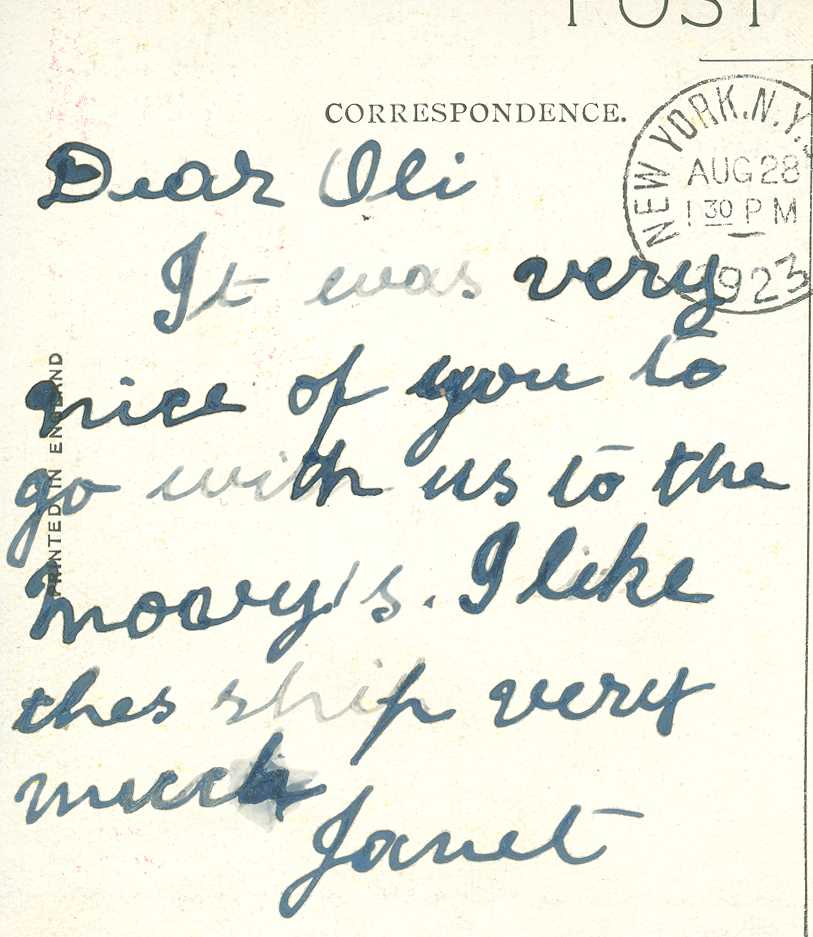 POST
CORRESPONDENCE.
NEW YORK, N.Y.
AUG 28
1 30 P M
1923
Dear Oli
It was very
nice of you to
go with us to the
moovy's. I like
thes ship very
much
Janet
PRINTED IN ENGLAND